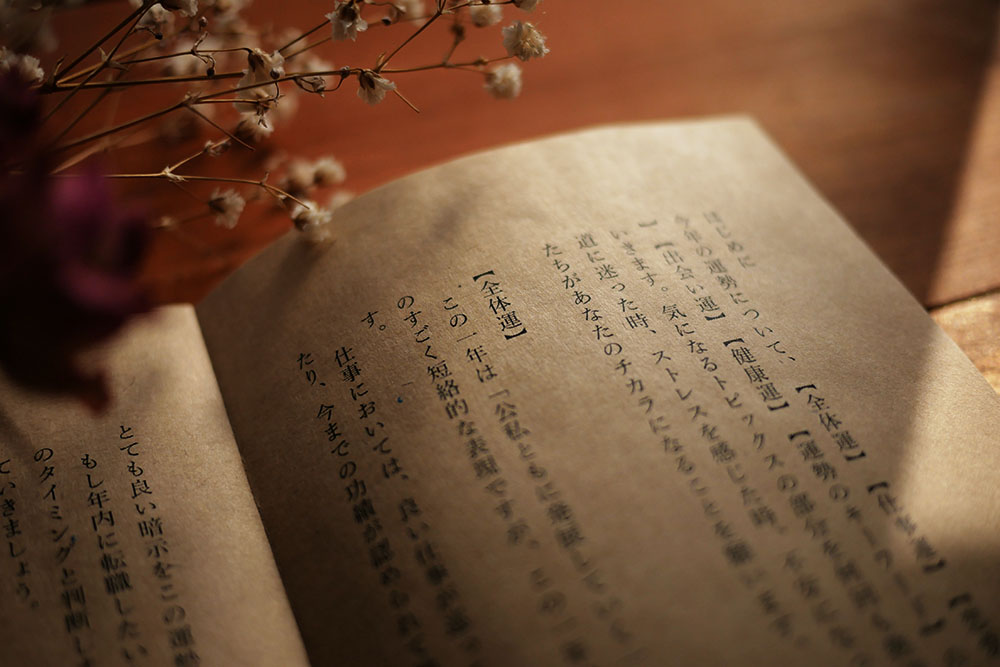 はじめに
今年の運勢について、【全体運】【仕事運】
】【出会い運】【健康運】【運勢のキーワード
いきます。気になるトピックスの部分を
道に迷った時、ストレスを感じた時、不安にな
たちがあなたのチカラになることを願います。
【全体運】
この一年は「公私ともに発展していく
のすごく短絡的な表現ですが、この一
す。
仕事においては、良い仕事が
たり、今までの功績が認められて
とても良い暗示をこの運
もし年内に転職したい
のタイミングと判断し
ていきましょう。